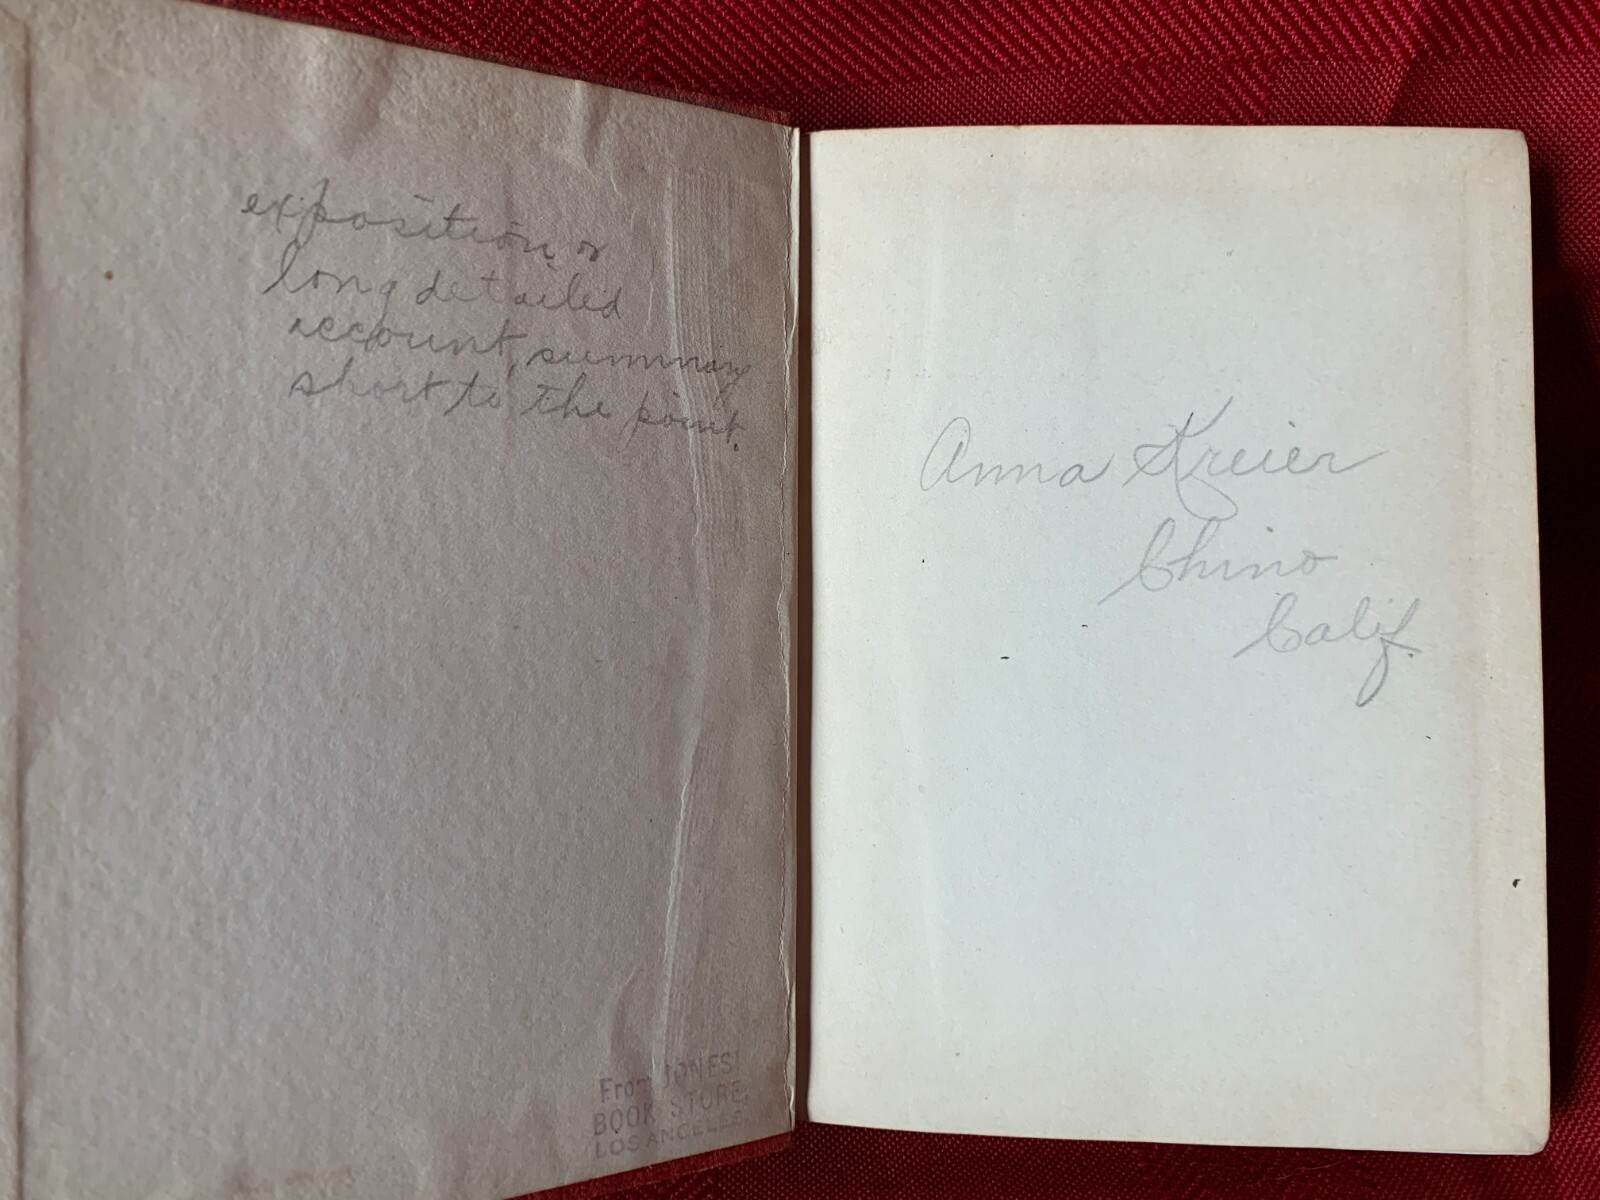 exposition or
long detailed
account, summary
short to the point.
From JONES'
BOOK STORE,
LOS ANGELES.
Anna Kreier
Chino
Calif.